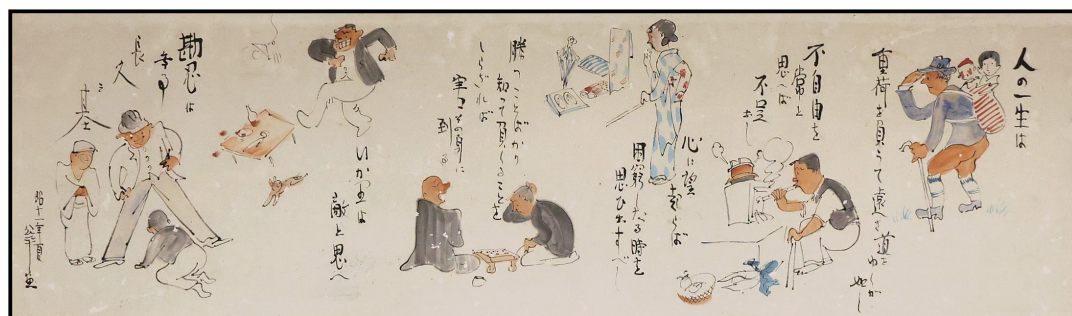 人の一生は
重荷を負うて遠き道をゆくが如し
不自由を
常と
思へば
不足
なし
心に望起らば
困窮したる時を
思ひ出すべし
勝つことばかり
知つて負くることを
しらざれば
害その身に
到る
いかりは
敵と思へ
勘忍は
無事
長久
の
基